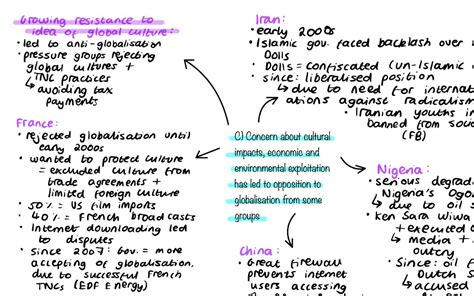 Growing resistance to
idea of global culture:
• led to anti-globalisation
• pressure groups rejecting
global cultures +
↳ TNC practices
↳ avoiding tax
payments
France:
• rejected globalisation until
early 2000s
• wanted to protect culture
= excluded culture from
trade agreements +
limited foreign culture
• 50% = US film imports
• 40% = French broadcasts
• Internet downloading led
to disputes
• since 2007: Gov. = more
accepting of globalisation,
due to successful French
TNCs (EDF Energy)
C) Concern about cultural
impacts, economic and
environmental exploitation
has led to opposition to
globalisation from some
groups
Iran:
• early 2000s
• Islamic gov. faced backlash over
Dolls
• Dolls = confiscated (un-Islamic
• since: liberalised position
↳ due to need for internat
ations against radicalism
↳ Iranian youths in
banned from soci
(FB)
Nigeria:
• serious degrad
Nigeria's Ogo
↳ due to oil s
• Ken Saro Wiwa
+ executed
↳ media +
outcry
• Since: oil
Dutch S
China:
• Great firewall
prevents internet
users accessing